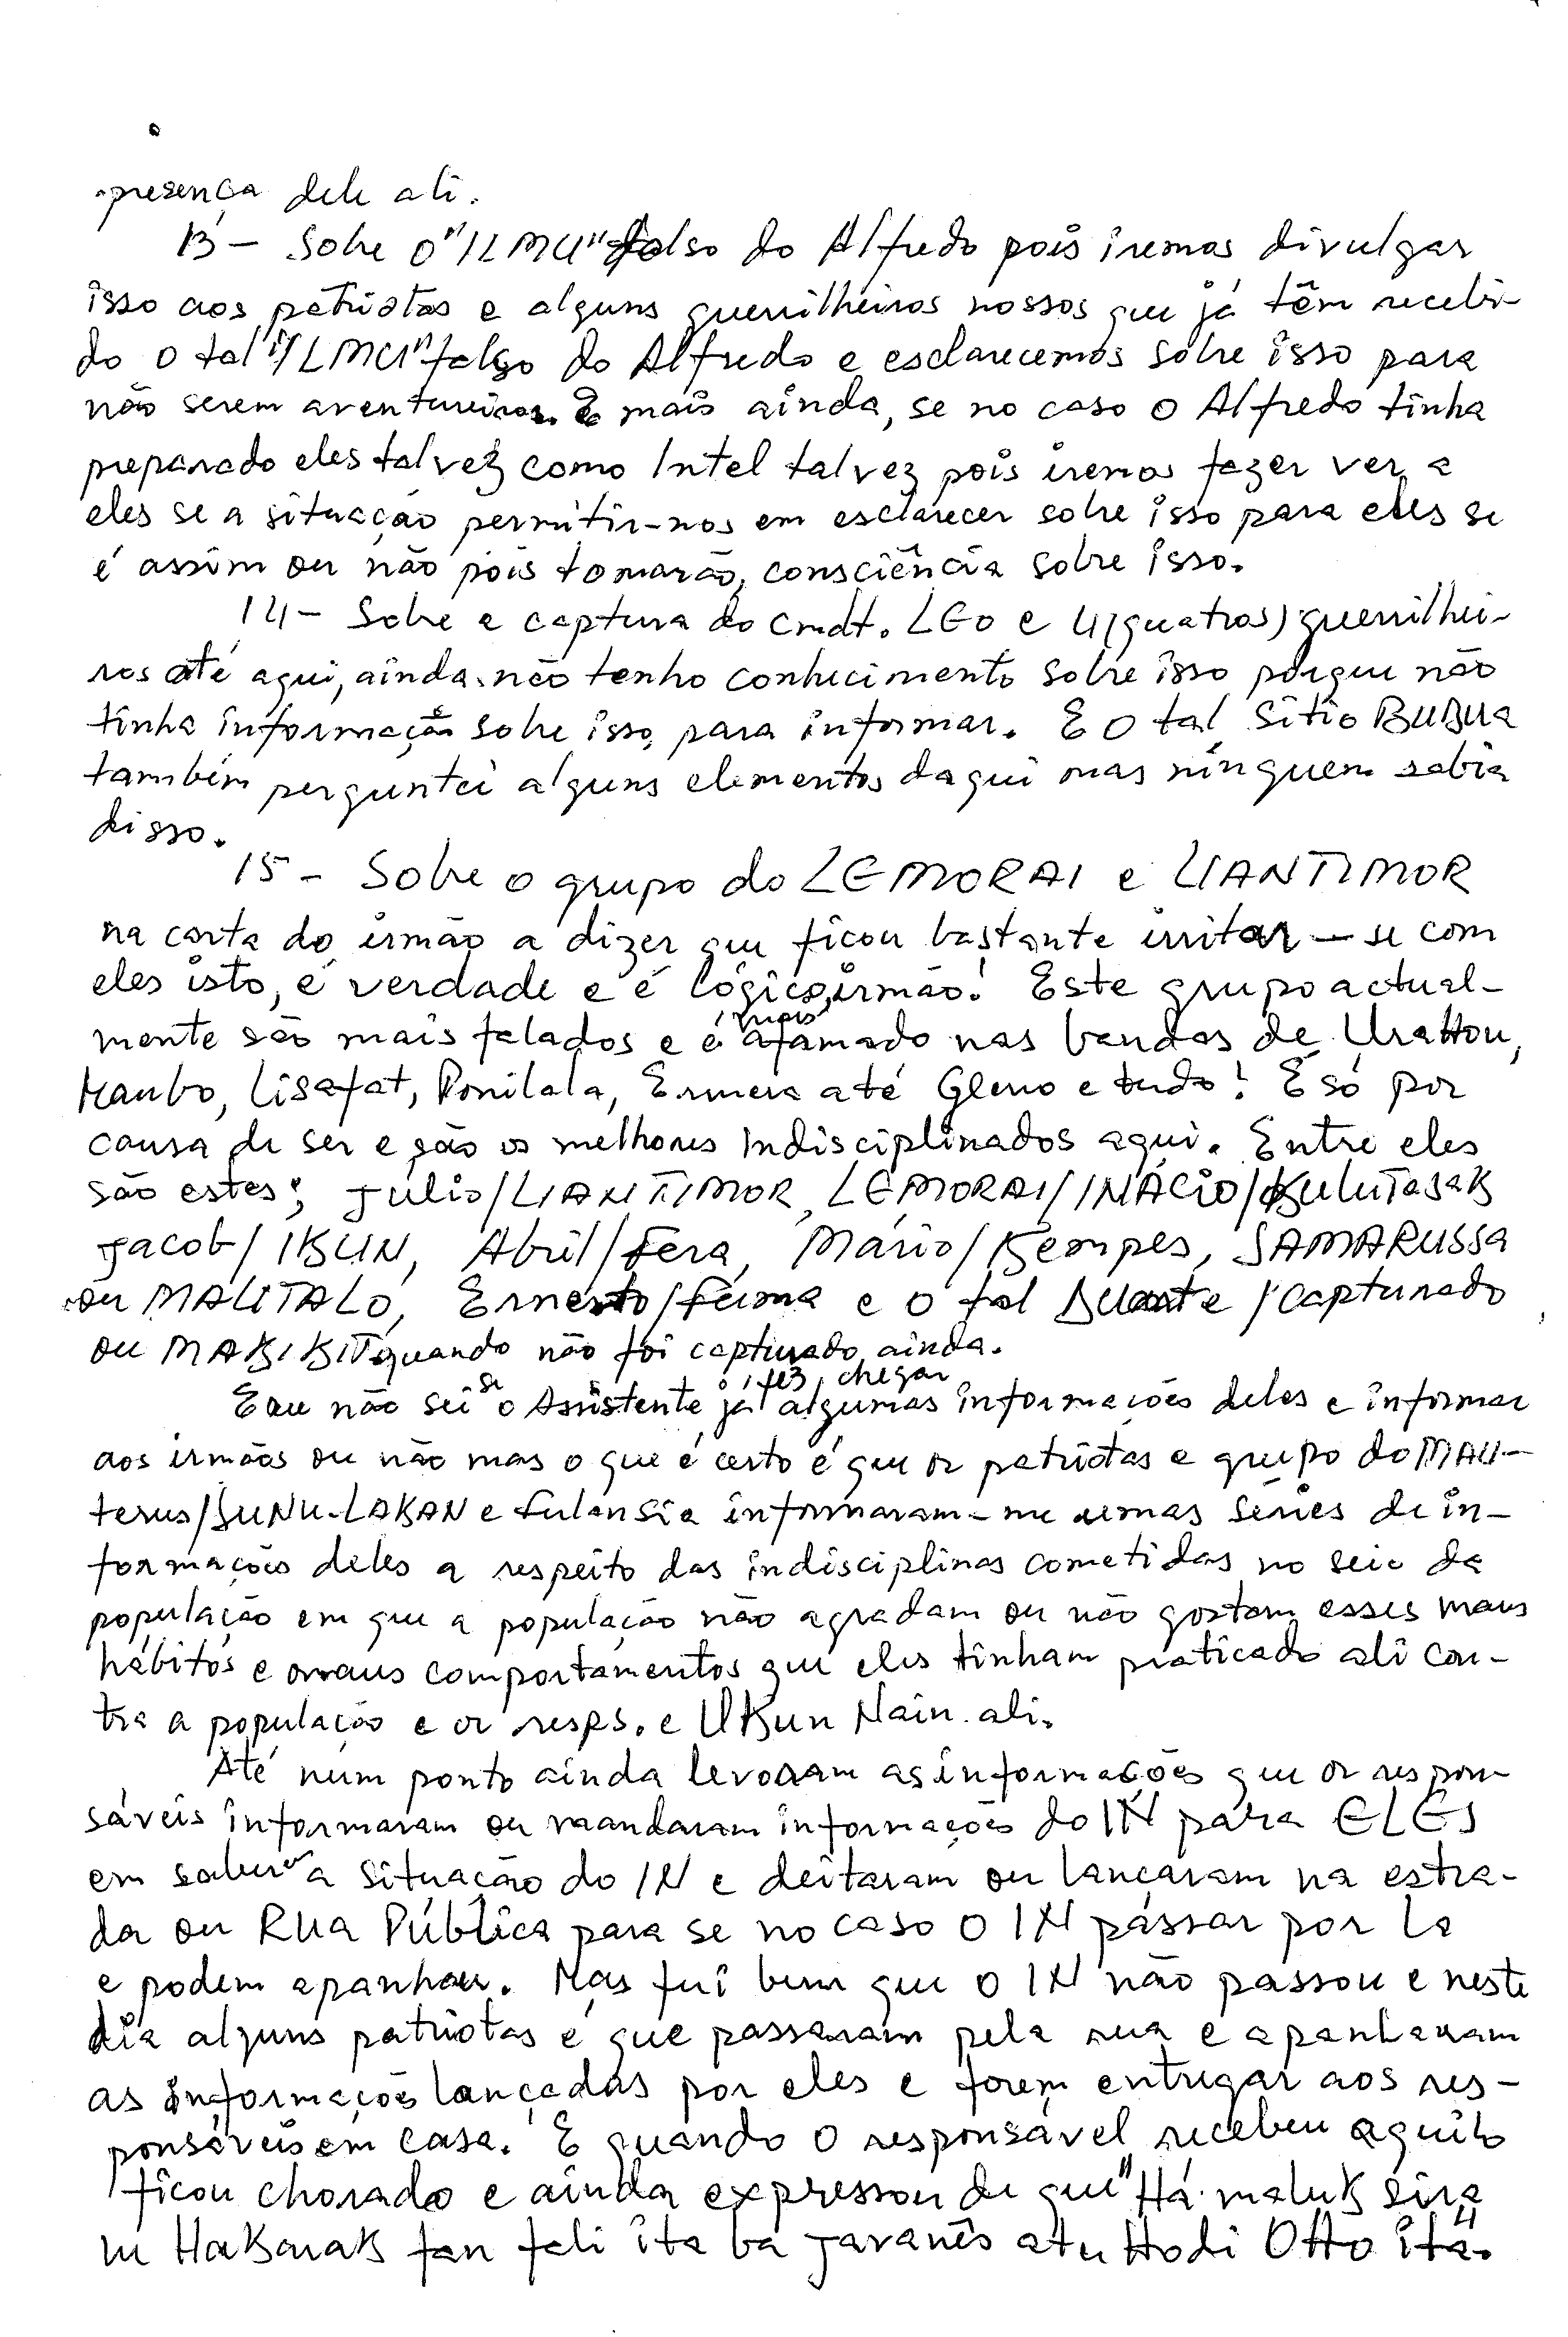 presença dele ali.
13 - Sobre o "ILMU" falso do Alfredo pois iremos divulgar
isso aos patriotas e alguns guerrilheiros nossos que já têm recebi-
do o tal "ILMU" falso do Alfredo e esclarecemos sobre isso para
não serem aventureiros. E mais ainda, se no caso o Alfredo tinha
preparado eles talvez como Intel talvez pois iremos fazer ver a
eles se a situação permitir-nos em esclarecer sobre isso para eles se
é assim ou não pois tomarão, consciência sobre isso.
14 - Sobre a captura do Cmdt. LEO e 4 (quatros) guerrilhei-
ros até aqui, ainda não tenho conhecimento sobre isso porque não
tinha informação sobre isso, para informar. E o tal Sitio BUBUA
também perguntei alguns elementos daqui mas ninguem sabia
disso.
15 - Sobre o grupo do LEMORAI e LIANTIMOR
na carta do irmão a dizer que ficou bastante irritar-se com
eles isto, é verdade e é lógico, irmão! Este grupo actual-
mente são mais falados e é mais afamado nas bandas de UraHou,
Haubo, Lisafat, Ponilala, Ermera até Gleno e tudo! E só por
causa de ser e são os melhores Indisciplinados aqui. Entre eles
são estes; Júlio/LIANTIMOR, LEMORAI/INÁCIO/KulutasaK
Jacob/IKUN, Abril/Fera, Mário/Kempes, SAMARUSSA
ou MAUTALO, Ernesto/ e o tal /capturado
ou MAKIKIT quando não foi capturado ainda.
E eu não sei se o Assistente já fez chegar algumas informações deles e informar
aos irmãos ou não mas o que é certo é que os patriotas e grupo do MAU-
terus/SUNU-LAKAN e informaram-me umas séries de in-
formações deles a respeito das indisciplinas cometidas no seio da
população em que a população não agradam ou não gostam esses maus
hábitos e maus comportamentos que eles tinham praticado ali con-
tra a população e os resps. e UKun Nain ali.
Até num ponto ainda levaram as informações que os respon-
sáveis informaram ou mandaram informações do IN para ELES
em saber a situação do IN e deitaram ou lançaram na estra-
da ou Rua Pública para se no caso o IN passar por la
e podem apanhar. Mas fui bem que o IN não passou e neste
dia alguns patriotas é que passaram pela rua e apanharam
as informações lançadas por eles e forem entregar aos res-
ponsáveis em casa. E quando o responsável recebeu aquilo
ficou chorado e ainda expressou de que "Há maluK sira
ne HaKaraK fan fali ita ba javanês atu Hodi OHo ita".